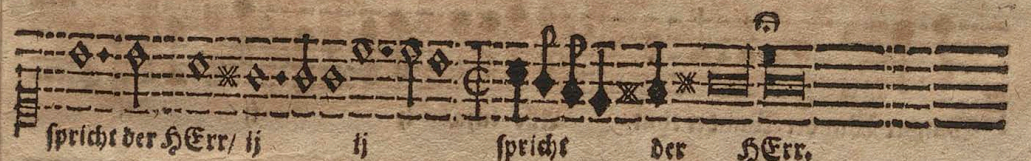 ſpricht der HErr/ ij ij ſpricht der HErr.